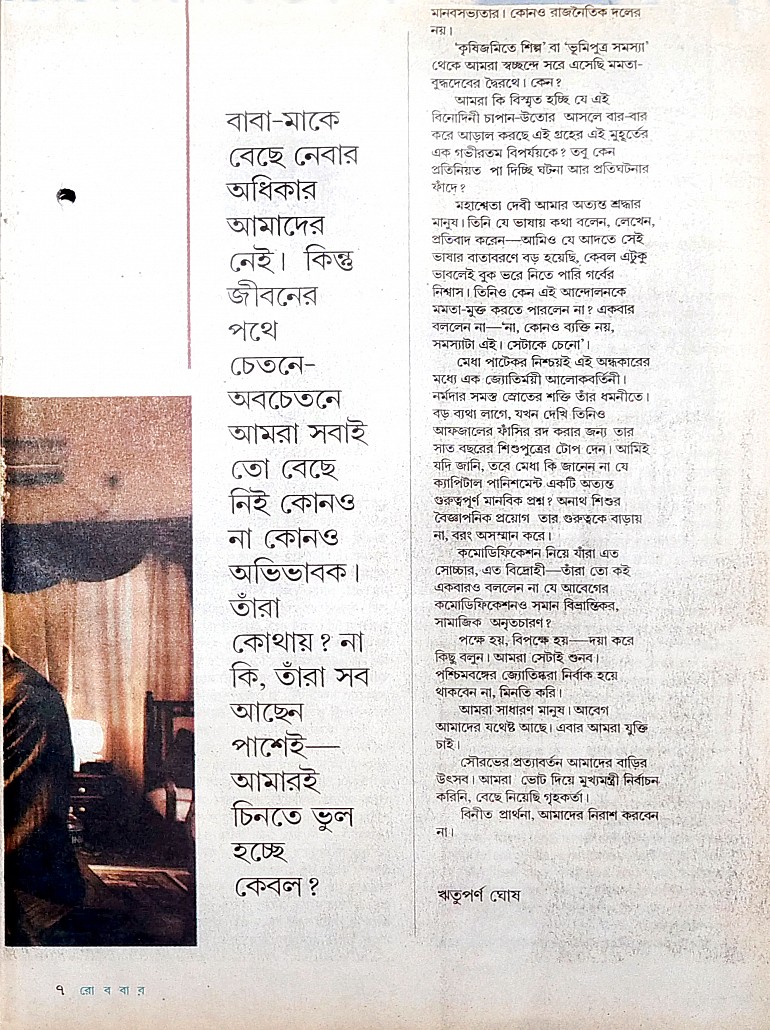 বাবা-মাকে
বেছে নেবার
অধিকার
আমাদের
নেই। কিন্তু
জীবনের
পথে
চেতনে-
অবচেতনে
আমরা সবাই
তো বেছে
নিই কোনও
না কোনও
অভিভাবক।
তাঁরা
কোথায়? না
কি, তাঁরা সব
আছেন
পাশেই—
আমারই
চিনতে ভুল
হচ্ছে
কেবল?
মানবসভ্যতার। কোনও রাজনৈতিক দলের
নয়।
'কৃষিজমিতে শিল্প' বা 'ভূমিপুত্র সমস্যা'
থেকে আমরা স্বচ্ছন্দে সরে এসেছি মমতা-
বুদ্ধদেবের দ্বৈরথে। কেন?
আমরা কি বিস্মৃত হচ্ছি যে এই
বিনোদিনী চাপান-উতোর আসলে বার-বার
করে আড়াল করছে এই গ্রহের এই মুহূর্তের
এক গভীরতম বিপর্যয়কে? তবু কেন
প্রতিনিয়ত পা দিচ্ছি ঘটনা আর প্রতিঘটনার
ফাঁদে?
মহাশ্বেতা দেবী আমার অত্যন্ত শ্রদ্ধার
মানুষ। তিনি যে ভাষায় কথা বলেন, লেখেন,
প্রতিবাদ করেন—আমিও যে আদতে সেই
ভাষার বাতাবরণে বড় হয়েছি, কেবল এটুকু
ভাবলেই বুক ভরে নিতে পারি গর্বের
নিশ্বাস। তিনিও কেন এই আন্দোলনকে
মমতা-মুক্ত করতে পারলেন না? একবার
বললেন না—'না, কোনও ব্যক্তি নয়,
সমস্যাটা এই। সেটাকে চেনো'।
মেধা পাটেকর নিশ্চয়ই এই অন্ধকারের
মধ্যে এক জ্যোতির্ময়ী আলোকবর্তিনী।
নর্মদার সমস্ত স্রোতের শক্তি তাঁর ধমনীতে।
বড় ব্যথা লাগে, যখন দেখি তিনিও
আফজালের ফাঁসির রদ করার জন্য তার
সাত বছরের শিশুপুত্রের টোপ দেন। আমিই
যদি জানি, তবে মেধা কি জানেন না যে
ক্যাপিটাল পানিশমেন্ট একটি অত্যন্ত
গুরুত্বপূর্ণ মানবিক প্রশ্ন? অনাথ শিশুর
বৈজ্ঞাপনিক প্রয়োগ তার গুরুত্বকে বাড়ায়
না, বরং অসম্মান করে।
কমোডিফিকেশন নিয়ে যাঁরা এত
সোচ্চার, এত বিদ্রোহী—তাঁরা তো কই
একবারও বললেন না যে আবেগের
কমোডিফিকেশনও সমান বিভ্রান্তিকর,
সামাজিক অনৃতচারণ?
পক্ষে হয়, বিপক্ষে হয়—দয়া করে
কিছু বলুন। আমরা সেটাই শুনব।
পশ্চিমবঙ্গের জ্যোতিষ্করা নির্বাক হয়ে
থাকবেন না, মিনতি করি।
আমরা সাধারণ মানুষ। আবেগ
আমাদের যথেষ্ট আছে। এবার আমরা যুক্তি
চাই।
সৌরভের প্রত্যাবর্তন আমাদের বাড়ির
উৎসব। আমরা ভোট দিয়ে মুখ্যমন্ত্রী নির্বাচন
করিনি, বেছে নিয়েছি গৃহকর্তা।
বিনীত প্রার্থনা, আমাদের নিরাশ করবেন
না।
ঋতুপর্ণ ঘোষ
৭ রোববার